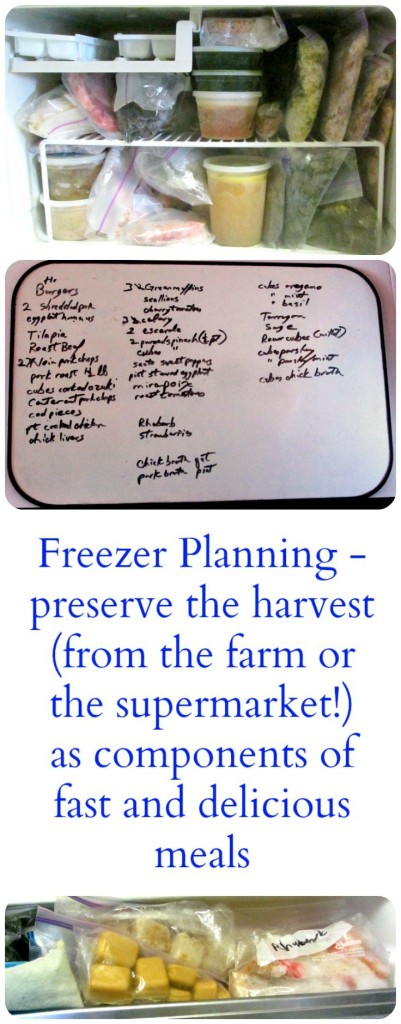 Burgers
2 shredded pork
eggplant hummus
Tilapia
Roast Beef
loin pork chops
pork roast 1/2 lb
cubes cooked azuki
Center cut pork chops
cod pieces
pt cooked chicken
chick livers
3 Green muffins
scallions
cherry tomatoes
celery
2 escarole
2 pureed spinach
cubes "
saute sweet peppers
pint stewed eggplant
mirapoix
roast tomatoes
Rhubarb
strawberries
Chick broth
pork broth pint
cubes oregano
" mint
" basil
Tarragon
Sage
cube parsley
" parsley/mint
cubes chick broth
Freezer Planning -
preserve the harvest
(from the farm or
the supermarket!)
as components of
fast and delicious
meals
Rhubarb